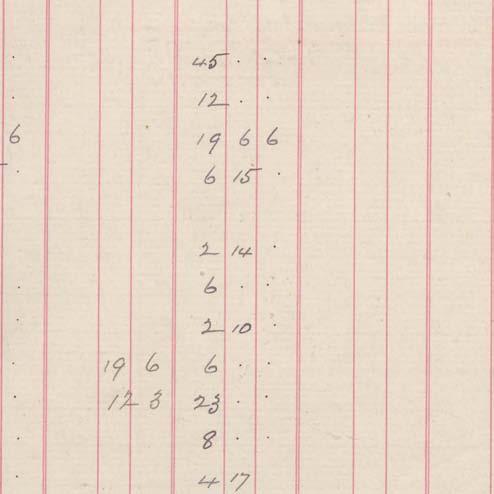 . 45 . .
. 12 . .
6 19 6 6
. 6 15 .
2 14 .
. 6 . .
. 2 10 .
. 19 6 6 . .
. 12 3 23 . .
. 8 . .
. 4 17